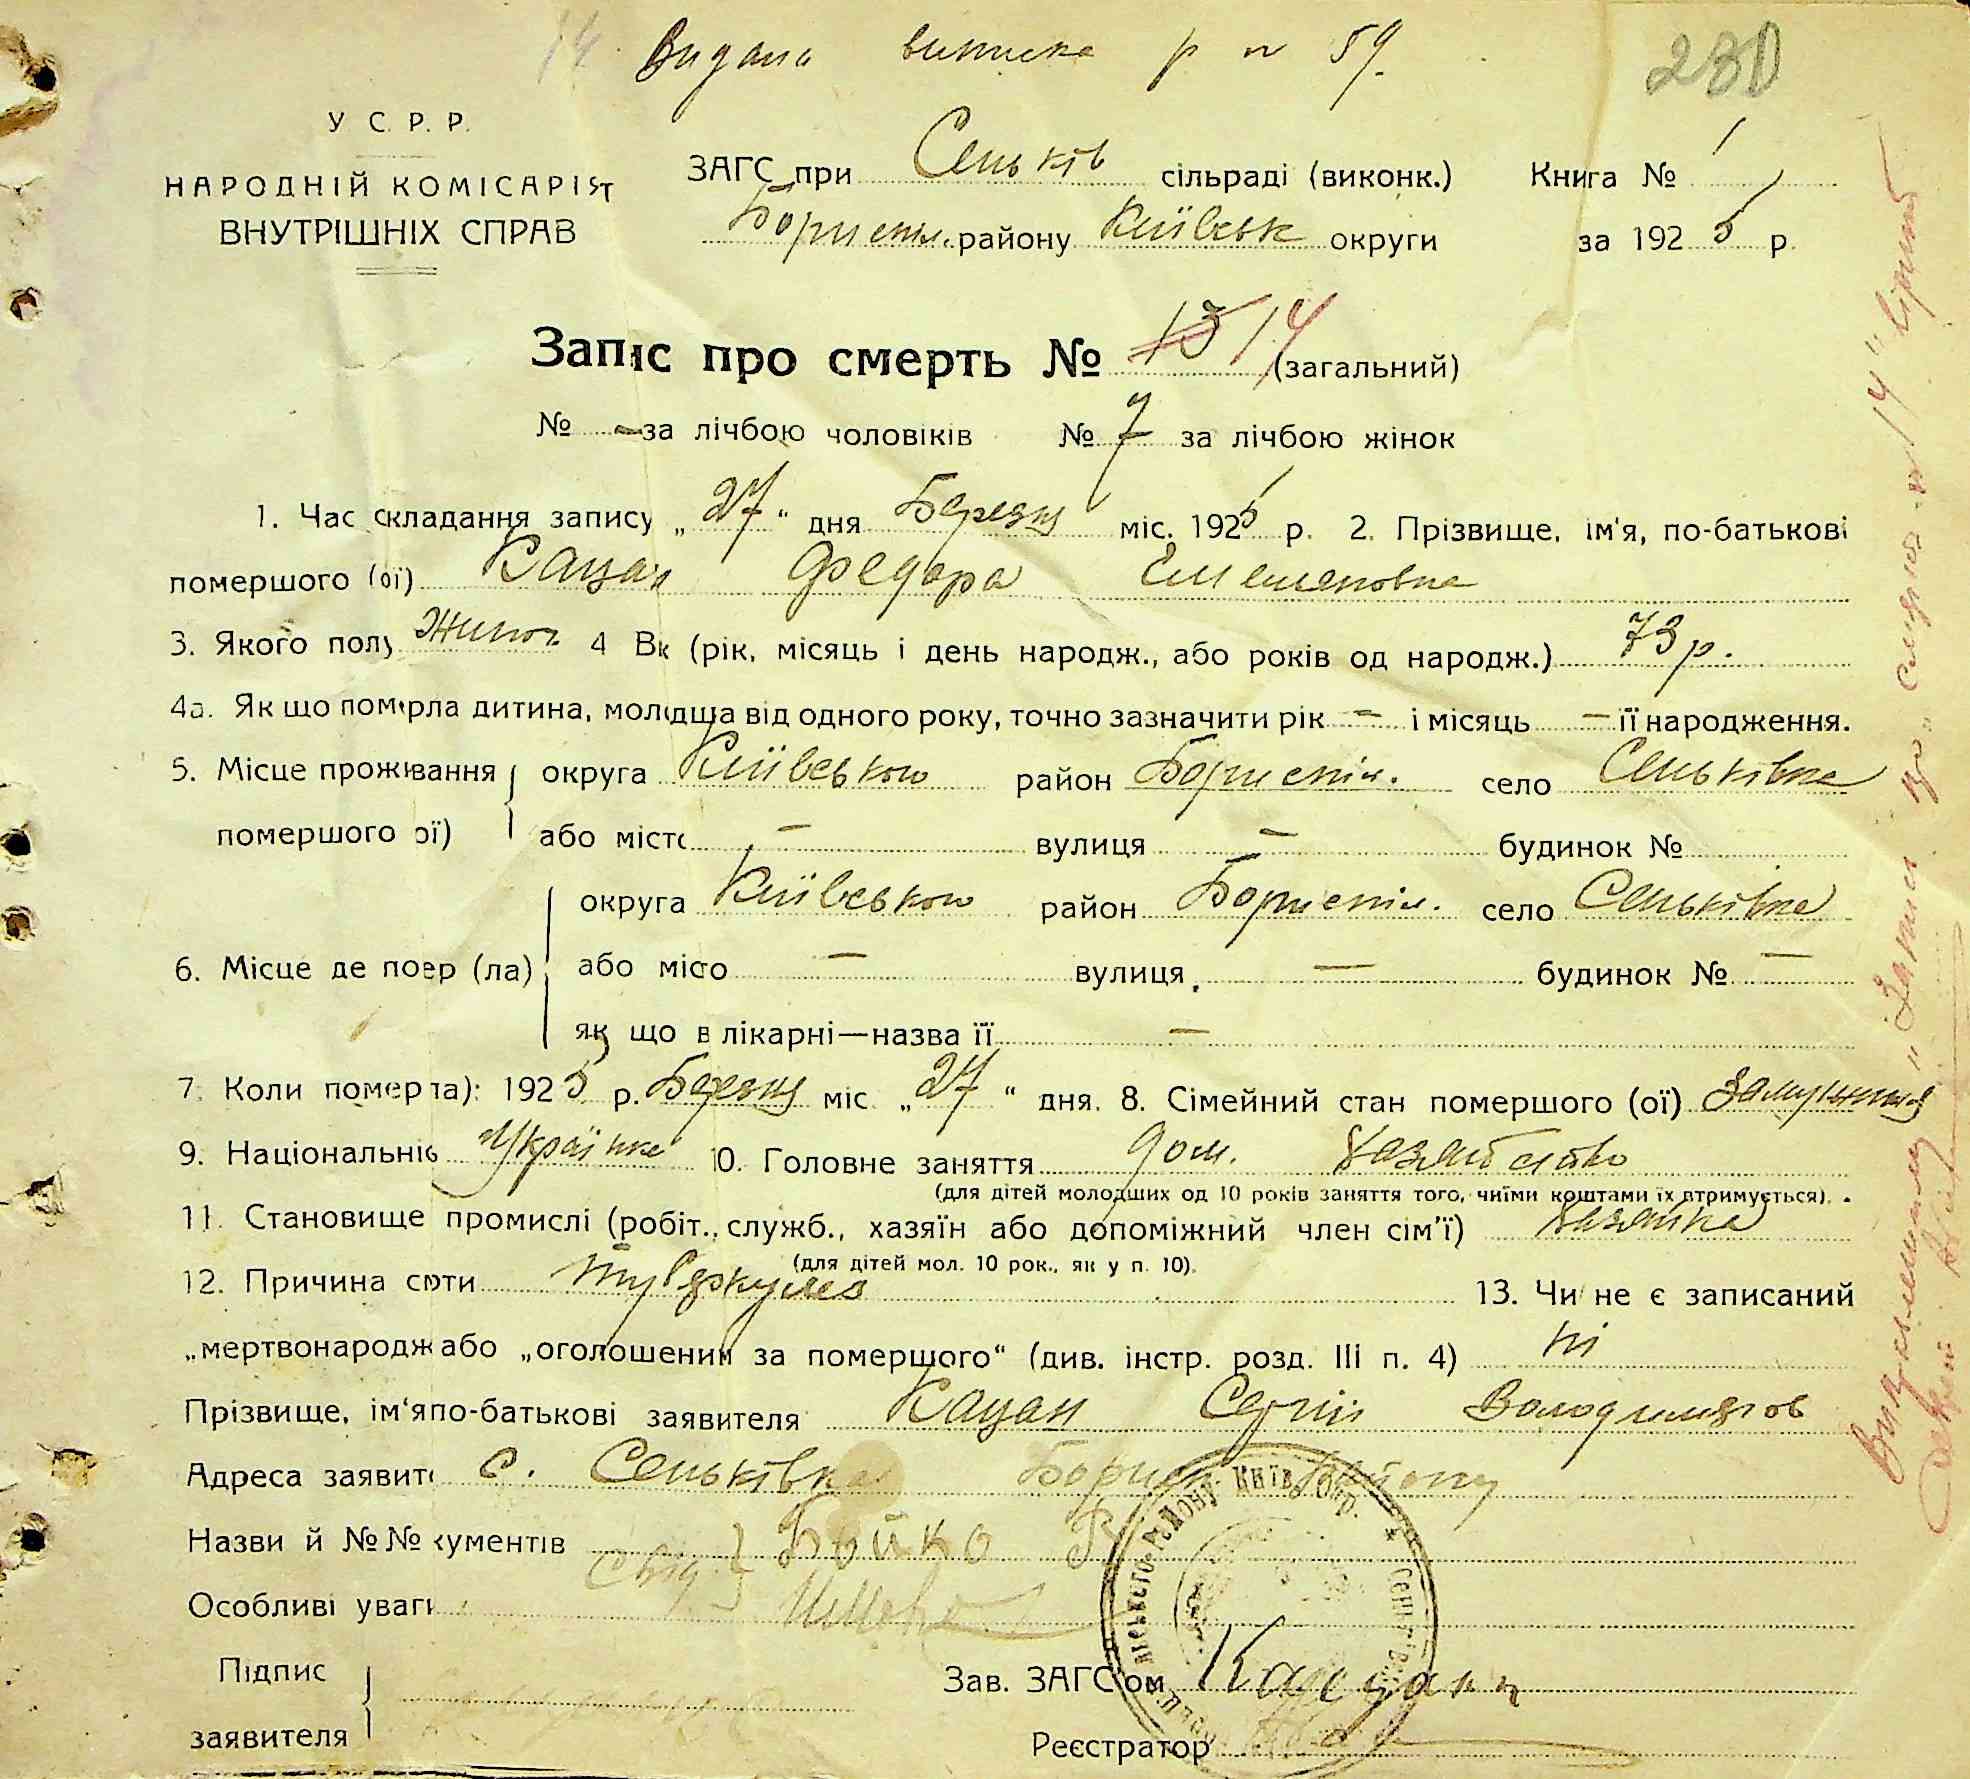 Видана виписка р № 59.
230
У С. Р. Р.
НАРОДНІЙ КОМІСАРІЯТ
ВНУТРІШНІХ СПРАВ
ЗАГС при Сеньків сільраді (виконк.) Книга № 1
Бориспіл. району Київськ округи за 1925 р.
Запис про смерть № 13 14 (загальний)
№ - за лічбою чоловіків № 7 за лічбою жінок
1. Час складання запису „27“ дня Березня міс. 1925 р. 2. Прізвище, ім'я, по-батькові
помершого (ої) Кацан Федора Емеляновна
3. Якого полу Жиноч 4 Вк (рік, місяць і день народж., або років од народж.) 73 р.
4а. Як що померла дитина, молодща від одного року, точно зазначити рік — і місяць — її народження.
5. Місце проживання округа Київською район Бориспіл. село Сеньківка
помершого ої) або місто — вулиця — будинок №
округа Київською район Бориспіл. село Сеньківка
6. Місце де поер (ла) або місто — вулиця — будинок № —
як що в лікарні—назва її —
7. Коли померла): 1925 р. Березня міс. „27“ дня. 8. Сімейний стан помершого (ої) Замужния
9. Національніс Українка 10. Головне заняття дом. хазяйство
(для дітей молодших од 10 років заняття того, чиїми коштами їх втримується).
11. Становище промислі (робіт., служб., хазяїн або допоміжний член сім'ї) хазяйка
(для дітей мол. 10 рок., як у п. 10).
12. Причина смрти туберкульоз 13. Чи не є записаний
„мертвонародж або „оголошений за помершого“ (див. інстр. розд. III п. 4) ні
Прізвище, ім'я по-батькові заявителя Кацан Сергій Володимиров
Адреса заявит с. Сеньківка Борисп. Району
Назви й №№ кументів Свід. Бойко В
Особливі уваги
Підпис
заявителя
Зав. ЗАГС'ом Кацан
Реєстратор